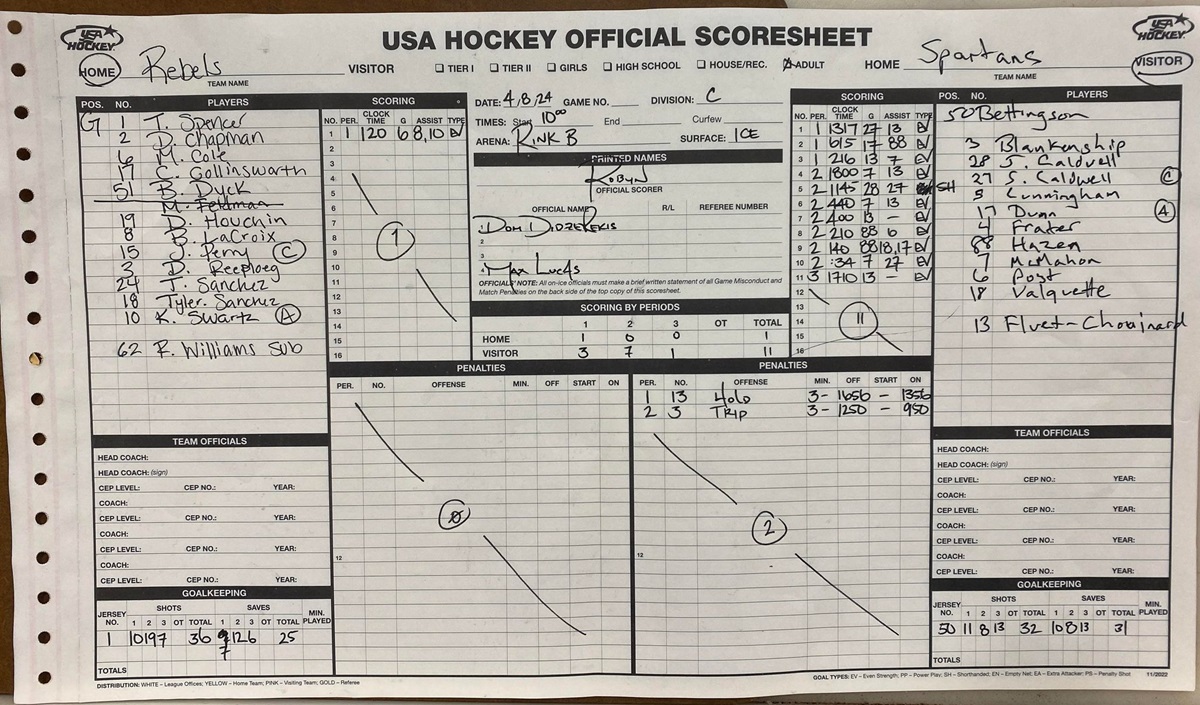 USA HOCKEY
USA HOCKEY OFFICIAL SCORESHEET
USA HOCKEY
HOME Rebels VISITOR
TEAM NAME
TIER I TIER II GIRLS HIGH SCHOOL HOUSE/REC. ADULT
HOME Spartans VISITOR
TEAM NAME
POS. NO. PLAYERS
G 1 T. Spencer
2 D. Chapman
6 M. Cole
17 C. Collinsworth
51 B. Dyck
M. Feldman
19 D. Houchin
8 B. LaCroix
15 J. Perry C
3 D. Reeploeg
24 T. Sanchez
18 Tyler. Sanchez
10 K. Swartz A
62 R. Williams Sub
SCORING
NO. PER. CLOCK TIME G ASSIST TYPE
1 1 120 6 8,10 EV
2
3
4
5
6
7
8
9
10
11
12
13
14
15
16
1
DATE: 4/8/24 GAME NO. DIVISION: C
TIMES: Start 10:00 End Curfew
ARENA: RINK B SURFACE: ICE
PRINTED NAMES
ROBYN
OFFICIAL SCORER
OFFICIAL NAME R/L REFEREE NUMBER
2
3
Max Lucas
OFFICIALS' NOTE: All on-ice officials must make a brief written statement of all Game Misconduct and
Match Penalties on the back side of the top copy of this scoresheet.
SCORING BY PERIODS
1 2 3 OT TOTAL
HOME 1 0 0 1
VISITOR 3 7 1 11
SCORING
NO. PER. CLOCK TIME G ASSIST TYPE
1 1 1317 27 13 EV
2 1 615 17 88 EV
3 1 216 13 7 EV
4 2 1800 7 13 EV
5 2 1145 28 27 SH
6 2 440 7 13 EV
7 2 400 13 - EV
8 2 210 88 6 EV
9 2 140 88 18,17 EV
10 2 :34 7 27 EV
11 3 1710 13 - EV
12
13
14
15
16
11
POS. NO. PLAYERS
50 Bettingson
3 Blankenship
28 J. Caldwell
27 S. Caldwell C
5 Cunningham
17 Dunn A
4 Frater
88 Hazen
7 McMahon
6 Post
18 Valquette
13 Fluet-Chouinard
PENALTIES
PER. NO. OFFENSE MIN. OFF START ON
12
0
PENALTIES
PER. NO. OFFENSE MIN. OFF START ON
1 13 Hold 3- 1656 - 1356
2 3 TRIP 3- 1250 - 950
12
2
TEAM OFFICIALS
HEAD COACH:
HEAD COACH: (sign)
CEP LEVEL: CEP NO.: YEAR:
COACH:
CEP LEVEL: CEP NO.: YEAR:
COACH:
CEP LEVEL: CEP NO.: YEAR:
COACH:
CEP LEVEL: CEP NO.: YEAR:
GOALKEEPING
JERSEY NO. SHOTS SAVES MIN. PLAYED
1 2 3 OT TOTAL 1 2 3 OT TOTAL
1 10 19 7 36 9 12 6 25
7
TOTALS
TEAM OFFICIALS
HEAD COACH:
HEAD COACH: (sign)
CEP LEVEL: CEP NO.: YEAR:
COACH:
CEP LEVEL: CEP NO.: YEAR:
COACH:
CEP LEVEL: CEP NO.: YEAR:
COACH:
CEP LEVEL: CEP NO.: YEAR:
GOALKEEPING
JERSEY NO. SHOTS SAVES MIN. PLAYED
1 2 3 OT TOTAL 1 2 3 OT TOTAL
50 11 8 13 32 10 8 13 31
TOTALS
DISTRIBUTION: WHITE – League Offices; YELLOW – Home Team; PINK – Visiting Team; GOLD – Referee
GOAL TYPES: EV – Even Strength; PP – Power Play; SH – Shorthanded; EN – Empty Net; EA – Extra Attacker; PS – Penalty Shot 11/2022